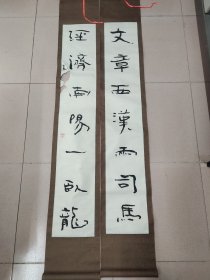 文章西漢兩司馬
經濟南陽一臥龍